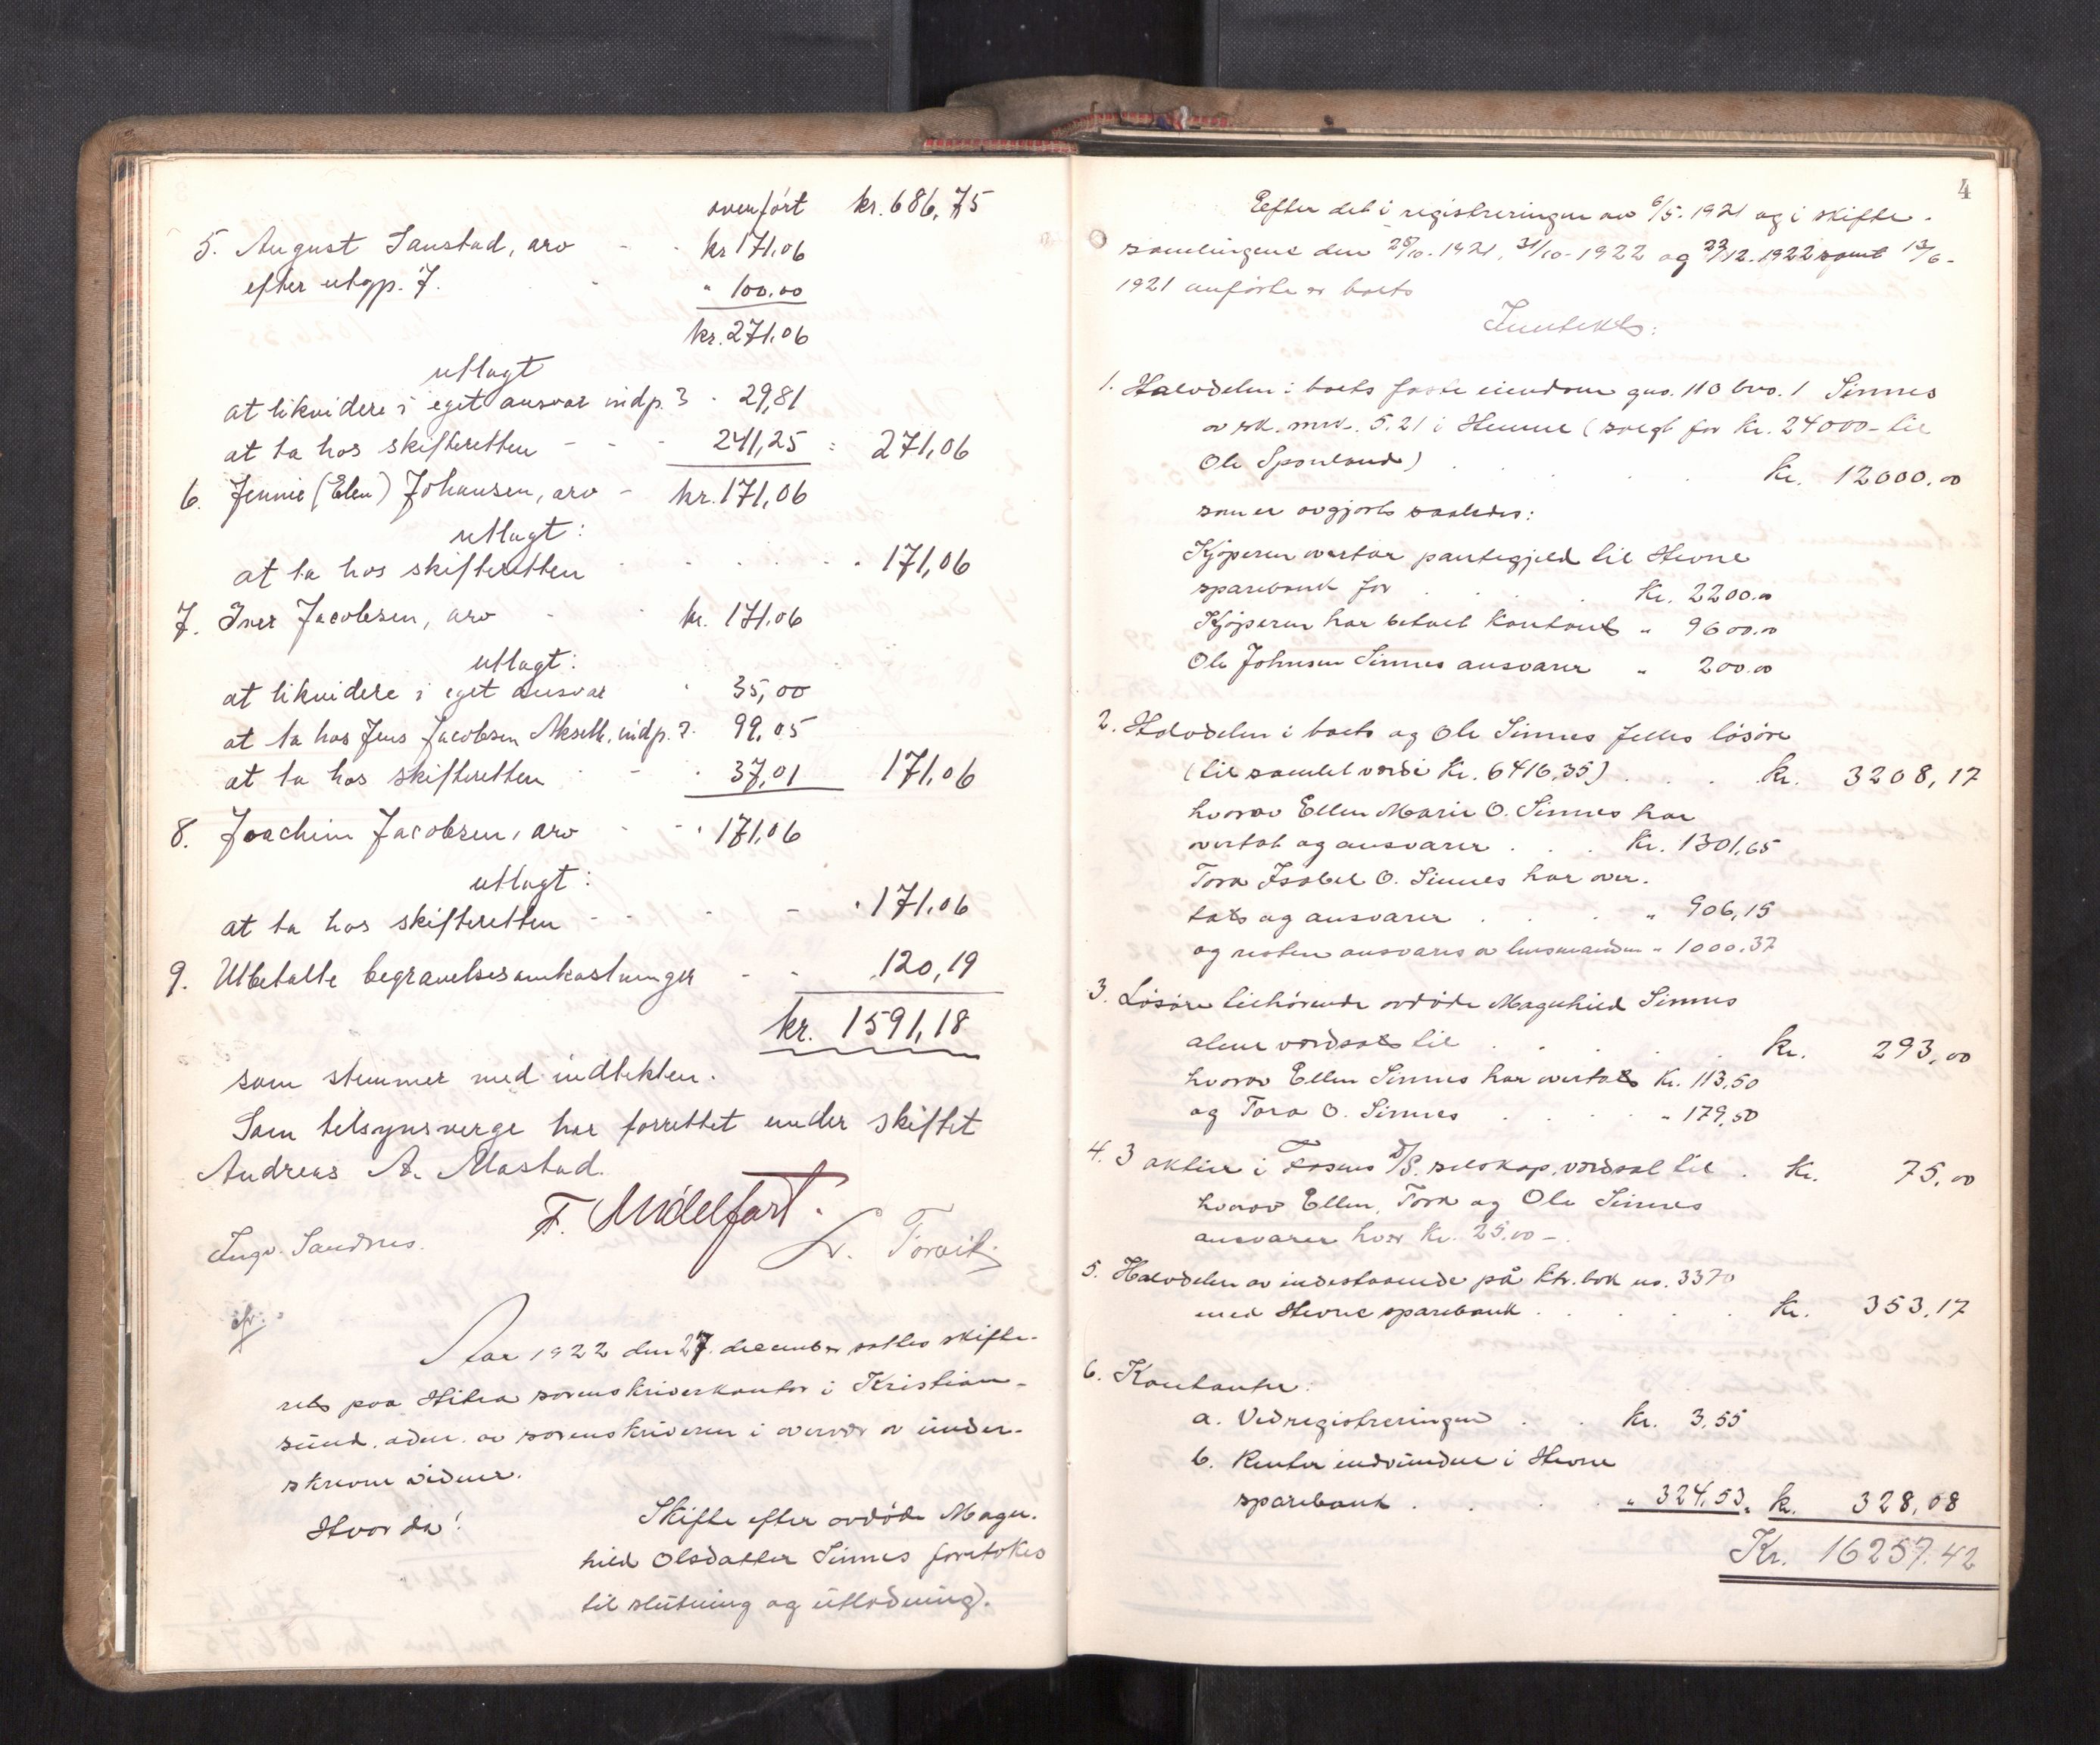 overført kr. 686,75
5. August Taustad, arv - - kr 171,06
efter utgp. 7. " 100.00
kr. 271,06
utlagt
at likvidere i eget ansvar indp. 3 - 29,81
at ta hos skifteretten - - - 241,25 = 271,06
6. Jennie (Elen) Johansen, arv - kr. 171,06
utlagt:
at ta hos skifteretten . . . . . . 171,06
7. Iver Jacobsen, arv - - kr. 171,06
utlagt:
at likvidere i eget ansvar " 35,00
at ta hos Jens Jacobsen Mseth, indp. 2. 99,05
at ta hos skifteretten - - . 37,01 171,06
8. Joachim Jacobsen, arv - - " 171,06
utlagt:
at ta hos skifteretten - - - - " 171,06
9. Utbetalte begravelsesomkostninger - - 120,19
kr. 1591,18
som stemmer med indtekten.
Som tilsynsverge har forrettet under skiftet
Andreas A. Mastad.
F. Midelfart.
Ingv. Sandnes. L. Torvik
Aar 1922 den 27. december sattes skifte-
rets paa Hitra sorenskriverkontor i Kristian-
sund, adm. av sorenskriveren i overvær av under-
skrevne vidner.
Hvorda!
Skifte efter avdøde Magn-
hild Olsdatter Sinnes foretokes
til slutning og utlodning.
4
Eefter det i registreringen av 6/5. 1921 og i skifte-
samlingene den 28/10. 1921, 31/10 - 1922 og 23/12. 1922 samt 13/6-
1921 anførte er boets
Inntekts:
1. Halvdelen i boets faste eiendom gno. 110 bno. 1 Sinnes
av sk. mrk. 5.21 i Hemne (solgt for kr. 24000- til
Ole Sponland) . . . . kr. 12000.00
som er avgjorts saaledes:
Kjøperen overtar pantegjeld til Hevne
sparebank for . . . Kr. 2200.00
Kjøperen har betalt kontant " 9600.00
Ole Johnsen Sinnes ansvarer " 200.00
2. Halvdelen i boets og Ole Sinnes felles løsøre
(til samlet verdi kr. 6416,35) . . . kr. 3208,17
hvorav Ellen Marie O. Sinnes har
overtat og ansvarer . . . Kr. 1301,65
Tora Isabel O. Sinnes har over-
tats og ansvarer . . . " 906,15
og resten ansvares av husmanden " 1000.37
3. Løsøre tilhørende avdøde Magnhild Sinnes
alene verdsats til . . . . . kr. 293,00
hvorav Ellen Sinnes har overtats kr. 113,50
og Tora O. Sinnes . . . . " 179,50
4. 3 aktier i Fosens D/S. selskap, verdsat til . kr. 75,00
hvorav Ellen, Tora og Ole Sinnes
ansvarer hver kr. 25,00 -.
5. Halvdelen av indestaaende på ktr. bok no. 3370
med Hevne sparebank . . . . . kr. 353,17
6. Kontanter:
a. Ved registreringen . . kr. 3,55
b. Renter indvundne i Hevne
sparebank . . . . " 324,53. kr. 328,08
Kr. 16257.42